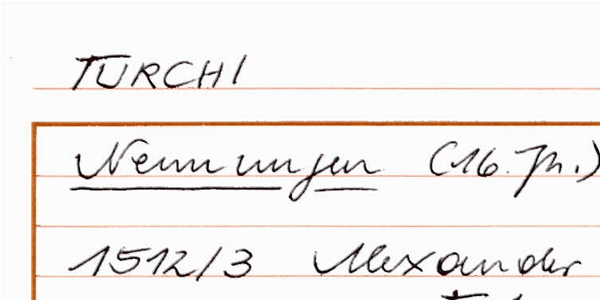 TURCHI
Nennungen (16. Jh.)
1512/3 Alexander